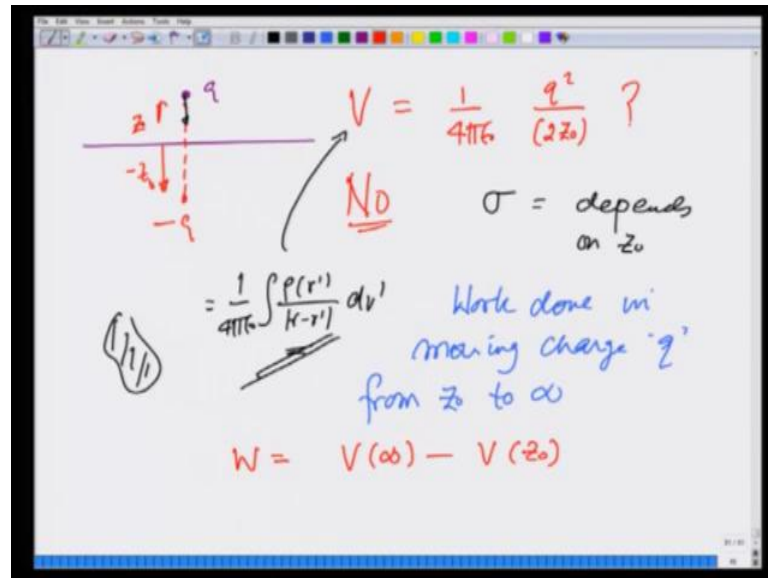 File Edit View Insert Actions Tools Help
q
z r
-z₀
-q
V = 1/4πε₀ q²/(2z₀) ?
No
σ = depends
on z₀
= 1/4πε₀ ∫ ρ(r')/|r-r'| dv'
Work done in
moving charge 'q'
from z₀ to ∞
W = V(∞) - V(z₀)